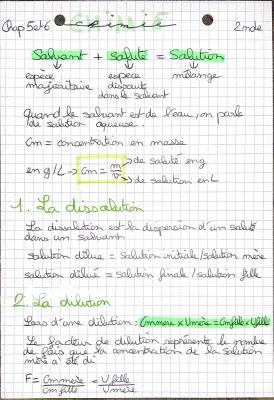 Chap 5 et 6 chimie 2nde
Solvant + soluté = Solution
espèce espèce mélange
majoritaire dissoute
dans le solvant
Quand le solvant est de l'eau, on parle
de solution aqueuse.
Cm = concentration en masse
en g/L → Cm = m/v → de soluté en g
→ de solution en L
1. La dissolution
La dissolution est la dispersion d'un soluté
dans un solvant
solution dilue = solution initiale/solution mère
solution dilué = solution finale/solution fille
2. La dilution
Lors d'une dilution : Cm mère x V mère = Cm fille x V fille
Le facteur de dilution représente le nombre
de fois que la concentration de la solution
mère a été di
F = Cm mère / Cm fille = V fille / V mère